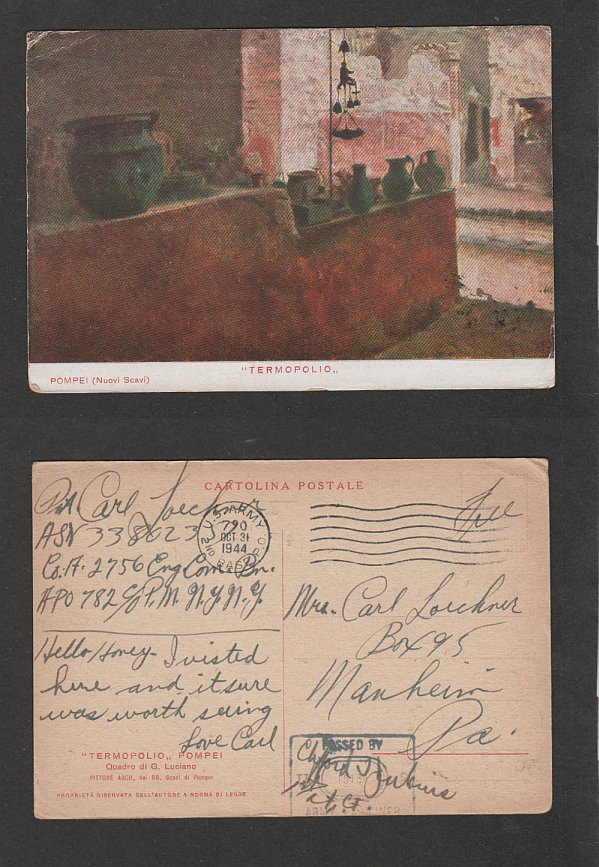 "TERMOPOLIO„
POMPEI (Nuovi Scavi)
CARTOLINA POSTALE
Pvt Carl Loechner
ASN 338623
Co. A. 2756 Eng Com. Bn.
APO 782 c/o P.M. N.Y. N.Y.
U.S. ARMY
790
OCT 31
1944
Free
Mrs. Carl Loechner
Box 95
Manheim
Pa.
Hello Honey - I visted
here and it sure
was worth seeing
Love Carl
"TERMOPOLIO„ POMPEI
Quadro di G. Luciano
PITTORE ARCH, dei RR. Scavi di Pompei
PROPRIETÀ RISERVATA DELL'AUTORE A NORMA DI LEGGE
PASSED BY
Jenkins